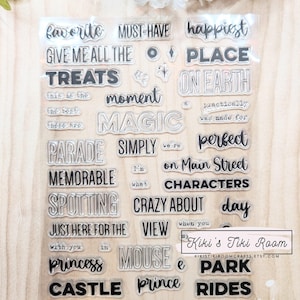 favorite MUST-HAVE happiest
GIVE ME ALL THE PLACE
TREATS ON EARTH
this is the moment a practically
the best was made for
MAGIC
PARADE SIMPLY we're perfect
I'm on Main Street
MEMORABLE what CHARACTERS
SPOTTING CRAZY ABOUT day
JUST HERE FOR THE VIEW when you
with you in MOUSE Kiki's Tiki Room
princess PARK
CASTLE prince RIDES